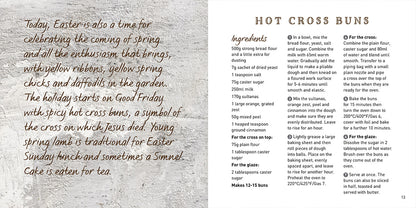 Today, Easter is also a time for
celebrating the coming of spring
and all the enthusiasm that brings,
with yellow ribbons, yellow spring
chicks and daffodils in the garden.
The holiday starts on Good Friday
with spicy hot cross buns, a symbol of
the cross on which Jesus died. Young
spring lamb is traditional for Easter
Sunday lunch and sometimes a Simnel
Cake is eaten for tea.
HOT CROSS BUNS
Ingredients
500g strong bread flour
and a little extra for
dusting
7g sachet of dried yeast
1 teaspoon salt
75g caster sugar
250ml milk
170g sultanas
1 large orange, grated
zest
50g mixed peel
1 heaped teaspoon
ground cinnamon
For the cross on top:
75g plain flour
1 tablespoon caster
sugar
For the glaze:
2 tablespoon caster
sugar
Makes 12-15 buns
1 In a bowl, mix the
bread flour, yeast, salt
and sugar. Combine the
milk with 60ml warm
water. Gradually add the
liquid to make a pliable
dough and then knead on
a floured work surface
for 5-6 minutes until
smooth and elastic.
2 Mix the sultanas,
orange zest, peel and
cinnamon into the dough
and make sure they are
evenly distributed. Leave
to rise for an hour.
3 Lightly grease a large
baking sheet and then
roll pieces of dough
into buns. Place on the
baking sheet, evenly
spaced apart, and leave
to rise for another hour.
Preheat the oven to
220°C/425°F/Gas 7.
4 For the cross:
Combine the plain flour,
caster sugar and 80ml
of water and blend until
smooth. Transfer to a
piping bag with a small
plain nozzle and pipe
a cross over the top of
the buns when they are
ready for the oven.
5 Bake the buns
for 15 minutes then
turn the oven down to
200°C/400°F/Gas 6,
cover with foil and bake
for a further 10 minutes.
6 For the glaze:
Dissolve the sugar in 2
tablespoons of hot water.
Brush over the buns as
they come out of the
oven.
7 Serve at once. The
buns can also be sliced
in half, toasted and
served with butter.
13